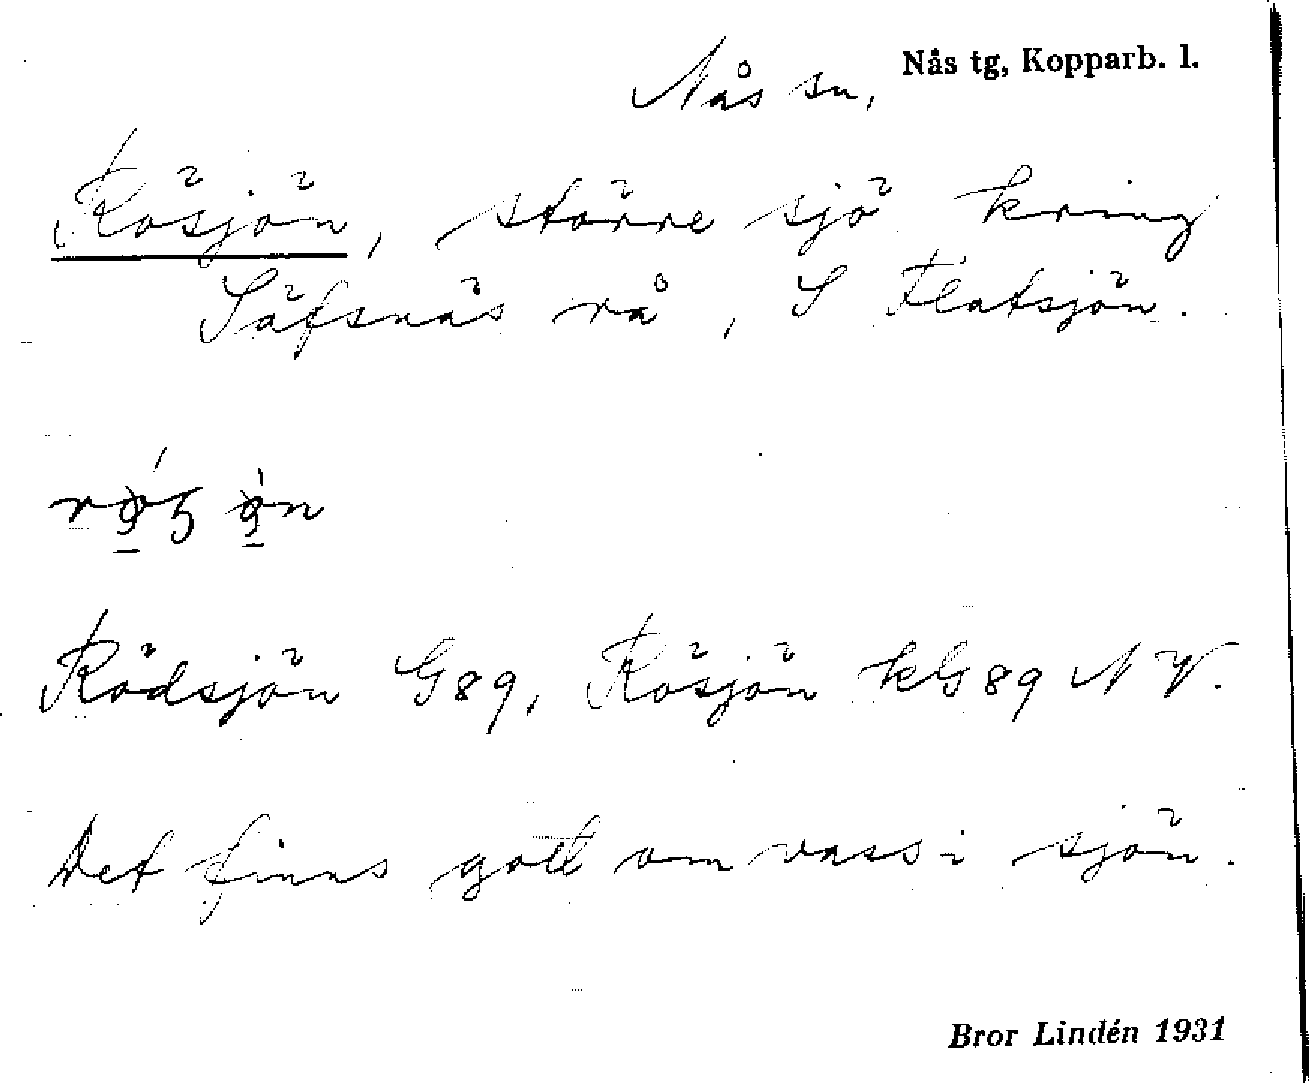 Nås tg, Kopparb. l.
Nås sn,
Rösjön, större sjö kring
Säfsnäs rå, S Flatsjön.
Rödsjön G89, Rösjön kG89 NV.
Det finns gott om vass i sjön.
Bror Lindén 1931